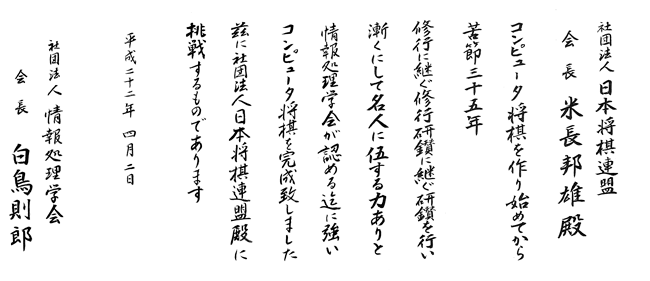 社団法人 日本将棋連盟
会長 米長邦雄殿
コンピュータ将棋を作り始めてから
苦節三十五年
修行に継ぐ修行研鑽に継ぐ研鑽を行い
漸くにして名人に伍する力ありと
情報処理学会が認める迄に強い
コンピュータ将棋を完成致しました
茲に社団法人日本将棋連盟殿に
挑戦するものであります
平成二十二年 四月二日
社団法人 情報処理学会
会長 白鳥則郎